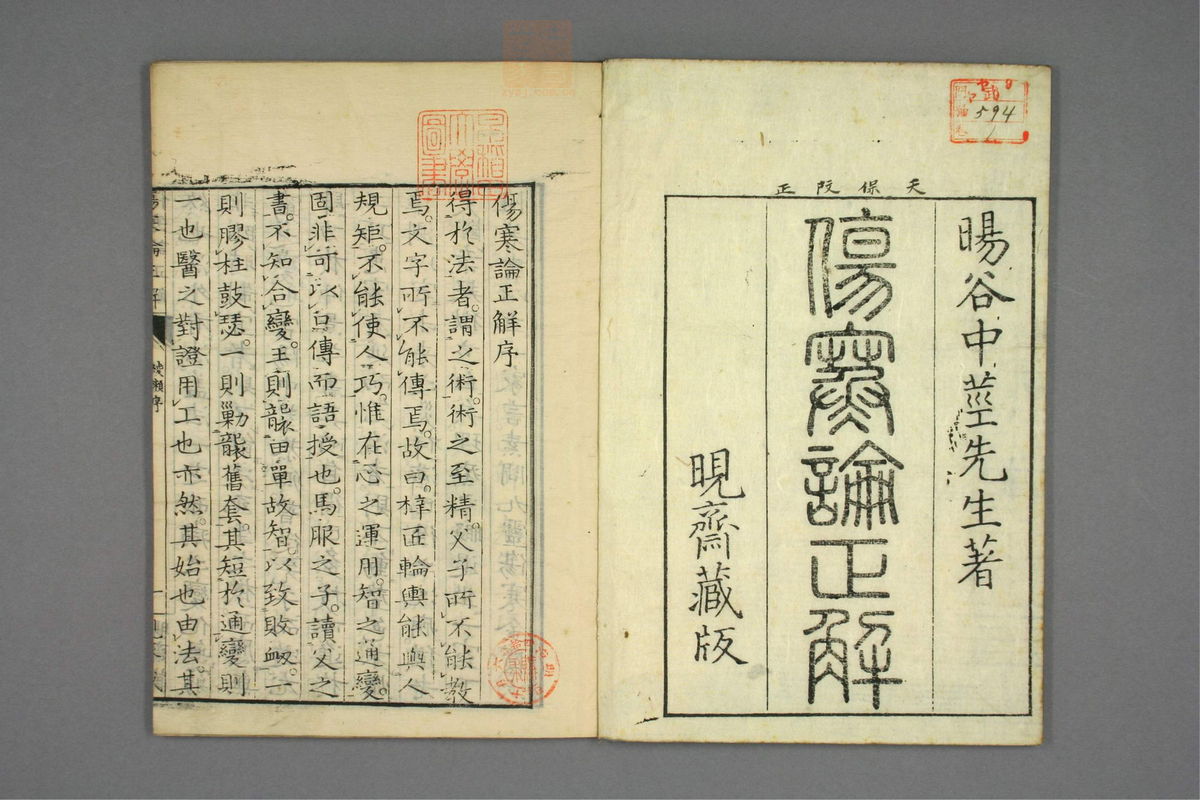 天保改正
暘谷中莖先生著
傷寒論正解
晛齋藏版
594
傷寒論正解序
得於法者。謂之術。術之至精。父子所不能教
焉。文字所不能傳焉。故曰。梓匠輪輿能與人
規矩。不能使人巧。惟在心之運用。智之通變。
固非可以口傳而語授也。馬服之子。讀父之
書。不知合變。王則襲田單故智。以致敗衂。一
則膠柱鼓瑟。一則勦襲舊套。其短於通變則
一也醫之對證用工也亦然。其始也由法。其